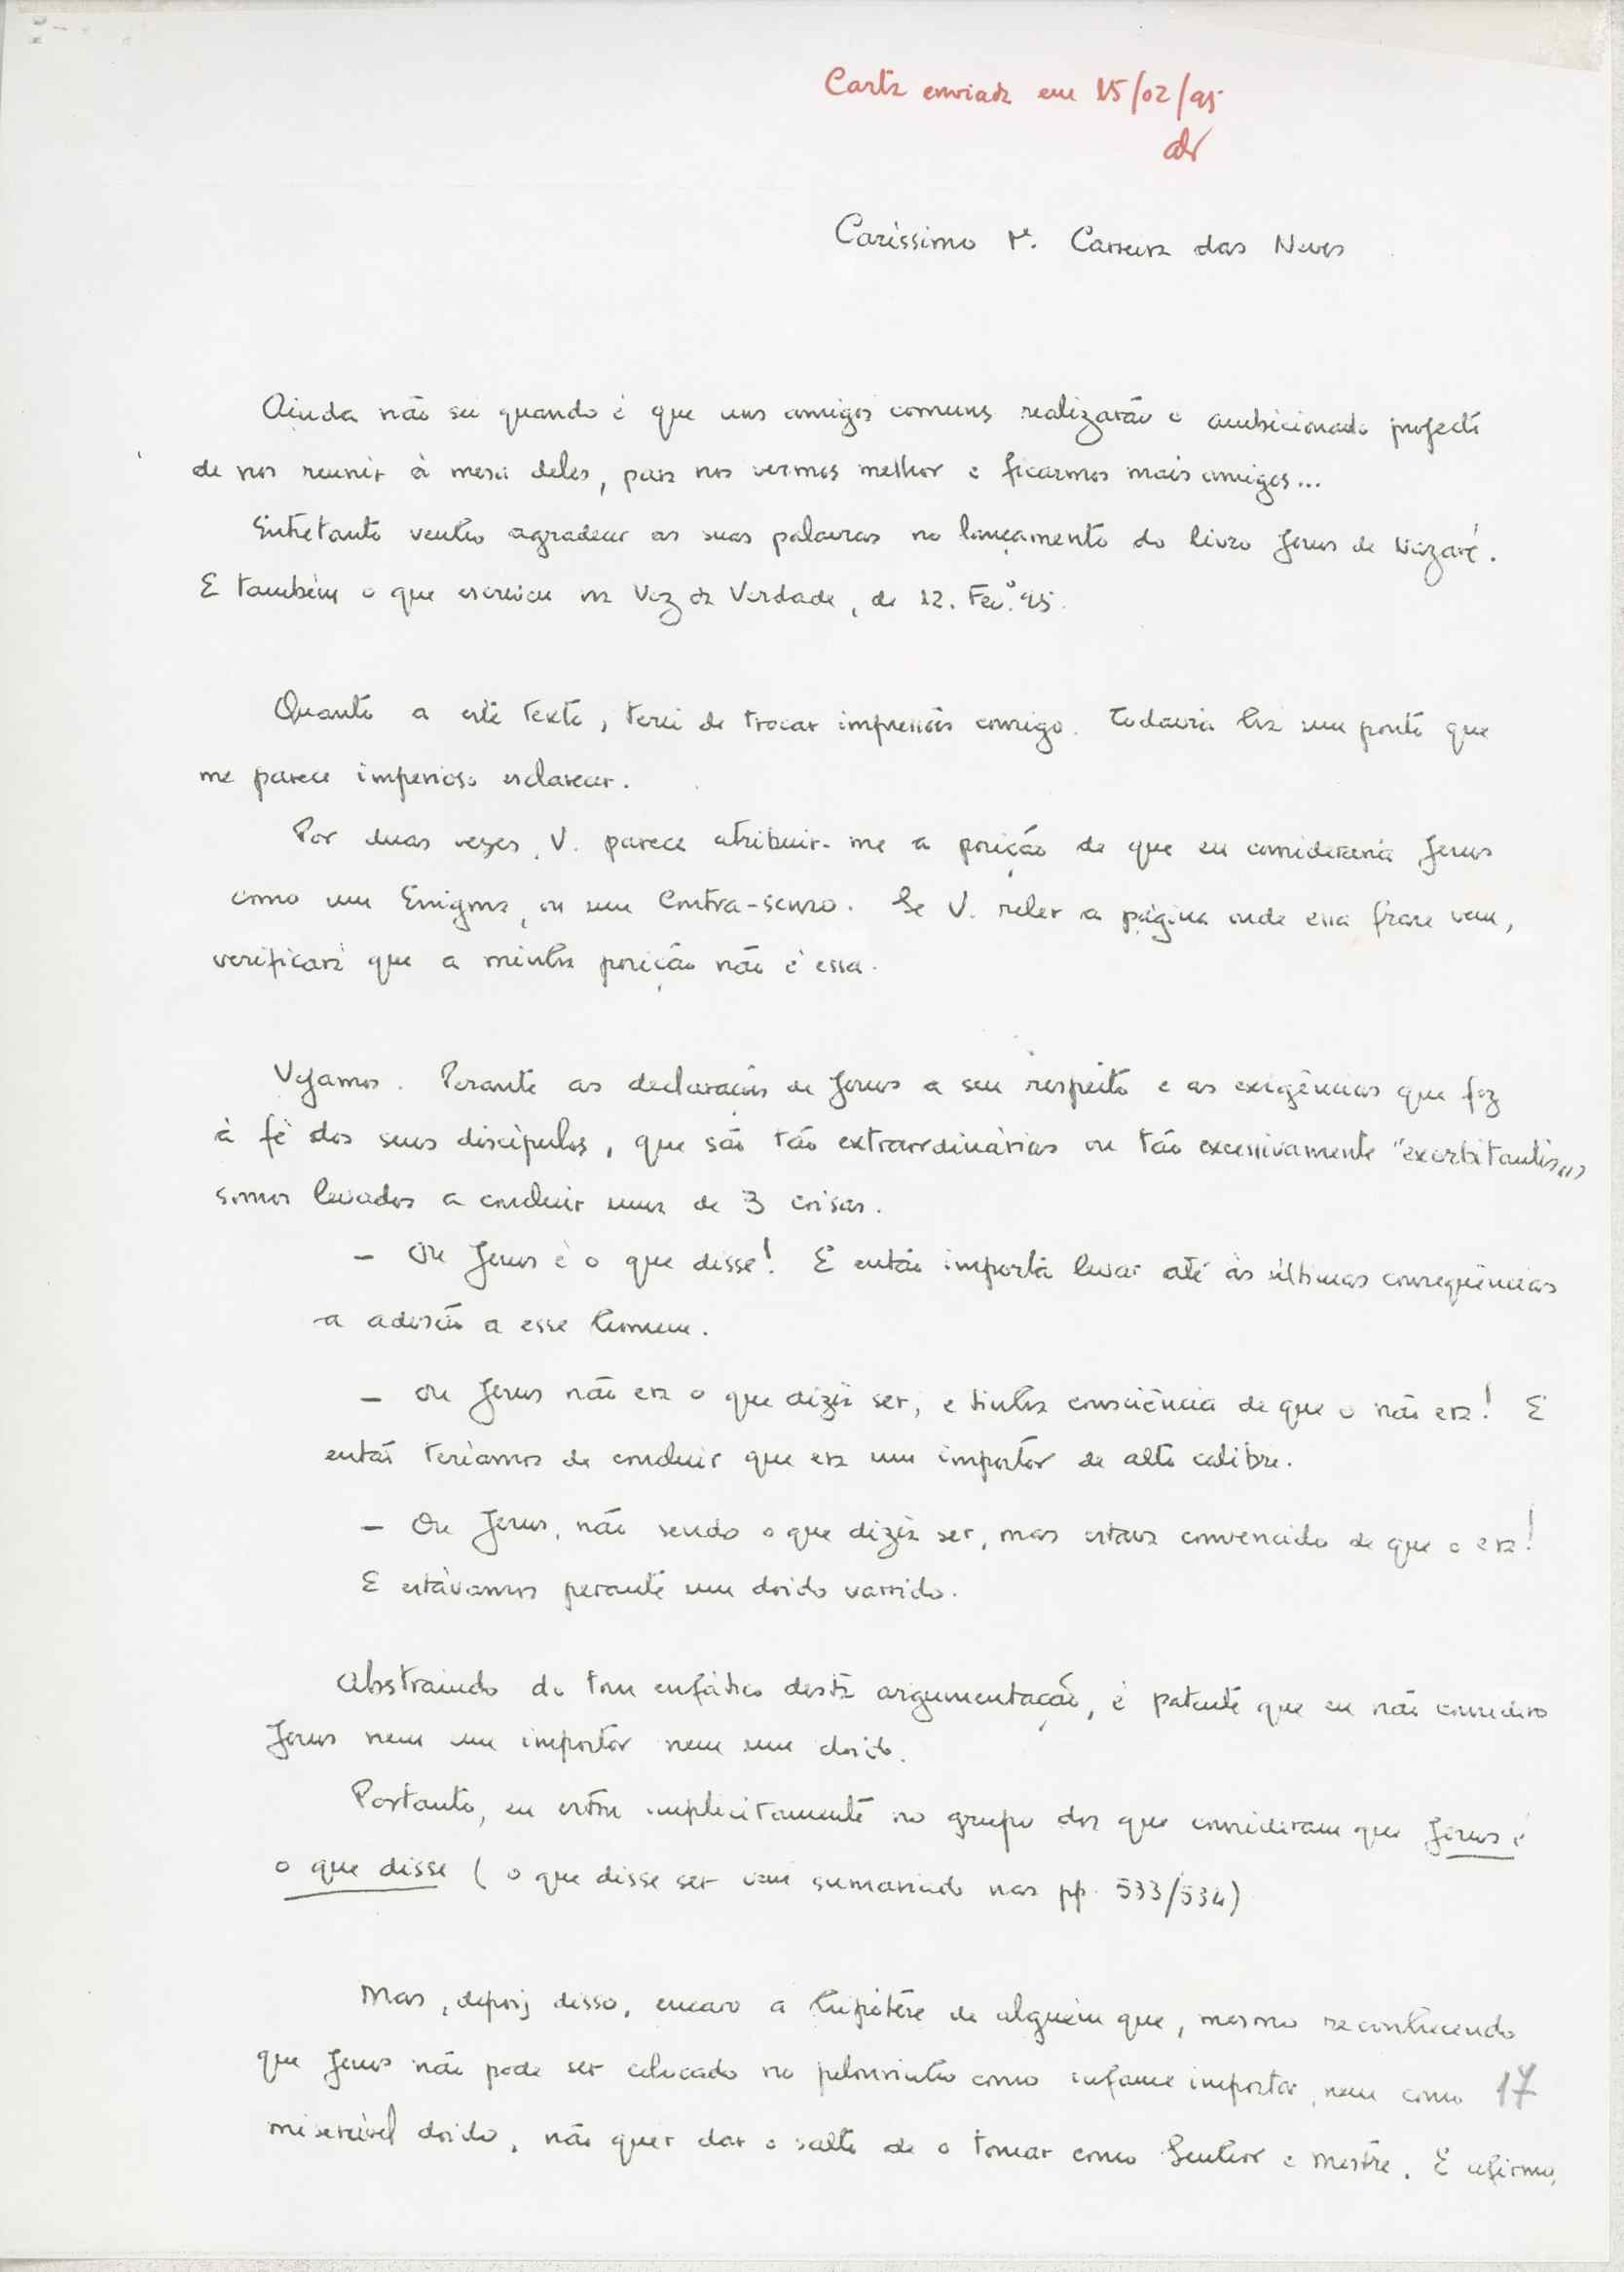 Carta enviada em 15/02/95
Caríssimo Pe. Carreira das Neves
Ainda não sei quando é que uns amigos comuns realizarão o ambicionado projecto
de nos reunir à mesa deles, para nos vermos melhor e ficarmos mais amigos...
Entretanto venho agradecer as suas palavras no lançamento do livro Jesus de Nazaré.
E também o que escreveu na Voz da Verdade, de 12. Fevº. 95.
Quanto a este texto, terei de trocar impressões consigo. Todavia há um ponto que
me parece imperioso esclarecer.
Por duas vezes, V. parece atribuir-me a posição de que eu consideraria Jesus
como um Enigma, ou um Contra-senso. Se V. reler a página onde essa frase vem,
verificará que a minha posição não é essa.
Vejamos. Perante as declarações de Jesus a seu respeito e as exigências que faz
à fé dos seus discípulos, que são tão extraordinárias ou tão excessivamente "exorbitantes",
somos levados a concluir uma de 3 coisas.
- Ou Jesus é o que disse! E então importa levar até às últimas consequências
a adesão a esse homem.
- Ou Jesus não era o que dizia ser, e tinha consciência de que o não era! E
então teríamos de concluir que era um impostor de alto calibre.
- Ou Jesus, não sendo o que dizia ser, mas estava convencido de que o era!
E estávamos perante um doido varrido.
Abstraindo do tom enfático desta argumentação, é patente que eu não considero
Jesus nem um impostor nem um doido.
Portanto, eu estou implicitamente no grupo dos que consideram que Jesus é
o que disse (o que disse ser vem sumariado nas pp. 533/534)
Mas, depois disso, encaro a hipótese de alguém que, mesmo reconhecendo
que Jesus não pode ser colocado no pelourinho como infame impostor, nem como
17
miserável doido, não quer dar o salto de o tomar como Senhor e Mestre. E afirmo,